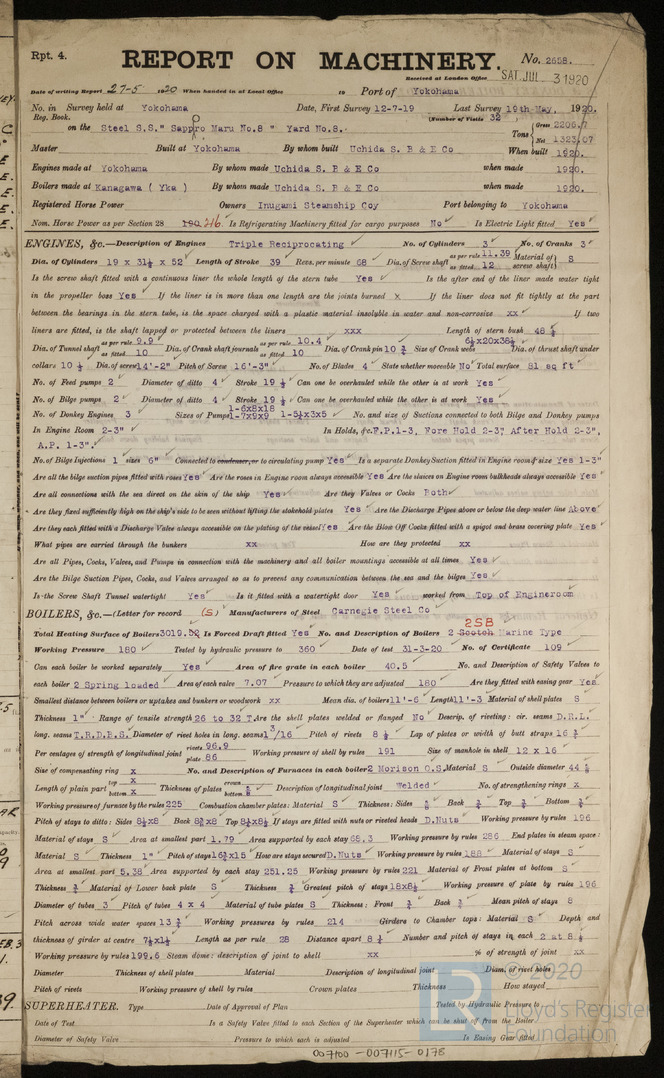 Rpt. 4.
REPORT ON MACHINERY.
No. 2658.
Received at London Office SAT. JUL 3 1920
Date of writing Report 27-5 1920 When handed in at Local Office 19 Port of Yokohama
No. in Survey held at Yokohama Date, First Survey 12-7-19 Last Survey 19th May, 1920.
Reg. Book. (Number of Visits 32
on the Steel S.S." Sapporo Maru No.8 " Yard No.8. Tons Gross 2206.7 Net 1323.07
Master Built at Yokohama By whom built Uchida S. B & E Co When built 1920.
Engines made at Yokohama By whom made Uchida S. B & E Co when made 1920.
Boilers made at Kanagawa ( Yka ) By whom made Uchida S. B & E Co when made 1920.
Registered Horse Power Owners Inugami Steamship Coy Port belonging to Yokohama
Nom. Horse Power as per Section 28 190 216. Is Refrigerating Machinery fitted for cargo purposes No Is Electric Light fitted Yes
ENGINES, &c.—Description of Engines Triple Reciprocating No. of Cylinders 3 No. of Cranks 3
Dia. of Cylinders 19 x 31½ x 52 Length of Stroke 39 Revs. per minute 68 Dia. of Screw shaft as per rule 11.39 as fitted 12 Material of screw shaft S
Is the screw shaft fitted with a continuous liner the whole length of the stern tube Yes Is the after end of the liner made water tight
in the propeller boss Yes If the liner is in more than one length are the joints burned x If the liner does not fit tightly at the part
between the bearings in the stern tube, is the space charged with a plastic material insoluble in water and non-corrosive xx If two
liners are fitted, is the shaft lapped or protected between the liners xxx Length of stern bush 48
Dia. of Tunnel shaft as per rule 9.9 as fitted 10 Dia. of Crank shaft journals as per rule 10.4 as fitted 10 Dia. of Crank pin 10 Size of Crank webs Dia. of thrust shaft under
collars 10 Dia. of screw 14'-2" Pitch of Screw 16'-3" No. of Blades 4 State whether moveable No Total surface 81 sq ft
No. of Feed pumps 2 Diameter of ditto 4 Stroke 19 Can one be overhauled while the other is at work Yes
No. of Bilge pumps 2 Diameter of ditto 4 Stroke 19 Can one be overhauled while the other is at work Yes
No. of Donkey Engines 3 Sizes of Pumps 1-6x8x18 1-7x9x9 1-5¼x3x5 No. and size of Suctions connected to both Bilge and Donkey pumps
In Engine Room 2-3" In Holds, &c. F.P.1-3, Fore Hold 2-3, After Hold 2-3",
A.P. 1-3".
No. of Bilge Injections 1 sizes 6" Connected to condenser, or to circulating pump Yes Is a separate Donkey Suction fitted in Engine room & size Yes 1-3"
Are all the bilge suction pipes fitted with roses Yes Are the roses in Engine room always accessible Yes Are the sluices on Engine room bulkheads always accessible Yes
Are all connections with the sea direct on the skin of the ship Yes Are they Valves or Cocks Both
Are they fixed sufficiently high on the ship's side to be seen without lifting the stokehold plates Yes Are the Discharge Pipes above or below the deep water line Above
Are they each fitted with a Discharge Valve always accessible on the plating of the vessel Yes Are the Blow Off Cocks fitted with a spigot and brass covering plate Yes
What pipes are carried through the bunkers xx How are they protected xx
Are all Pipes, Cocks, Valves, and Pumps in connection with the machinery and all boiler mountings accessible at all times Yes
Are the Bilge Suction Pipes, Cocks, and Valves arranged so as to prevent any communication between the sea and the bilges Yes
Is the Screw Shaft Tunnel watertight Yes Is it fitted with a watertight door Yes worked from Top of Engineroom
BOILERS, &c.—(Letter for record (S) Manufacturers of Steel Carnegie Steel Co
2SB
Total Heating Surface of Boilers 3019.52 Is Forced Draft fitted Yes No. and Description of Boilers 2 Scotch Marine Type
Working Pressure 180 Tested by hydraulic pressure to 360 Date of test 31-3-20 No. of Certificate 109
Can each boiler be worked separately Yes Area of fire grate in each boiler 40.5 No. and Description of Safety Valves to
each boiler 2 Spring loaded Area of each valve 7.07 Pressure to which they are adjusted 180 Are they fitted with easing gear Yes
Smallest distance between boilers or uptakes and bunkers or woodwork xx Mean dia. of boilers 11'-6 Length 11'-3 Material of shell plates S
Thickness 1" Range of tensile strength 26 to 32 T. Are the shell plates welded or flanged No Descrip. of riveting: cir. seams D.R.L.
long. seams T.R.D.B.S. Diameter of rivet holes in long. seams 1 3/16 Pitch of rivets 8 Lap of plates or width of butt straps 16
Per centages of strength of longitudinal joint rivets 96.9 plate 86 Working pressure of shell by rules 191 Size of manhole in shell 12 x 16
Size of compensating ring x No. and Description of Furnaces in each boiler 2 Morison C.S. Material S Outside diameter 44
Length of plain part top x bottom x Thickness of plates crown bottom Description of longitudinal joint Welded No. of strengthening rings x
Working pressure of furnace by the rules 225 Combustion chamber plates: Material S Thickness: Sides Back Top Bottom
Pitch of stays to ditto: Sides Back Top If stays are fitted with nuts or riveted heads D.Nuts Working pressure by rules 196
Material of stays S Area at smallest part 1.79 Area supported by each stay 68.3 Working pressure by rules 286 End plates in steam space:
Material S Thickness 1" Pitch of stays How are stays secured D.Nuts Working pressure by rules 188 Material of stays S
Area at smallest part 5.38 Area supported by each stay 251.25 Working pressure by rules 221 Material of Front plates at bottom S
Thickness Material of Lower back plate S Thickness Greatest pitch of stays Working pressure of plate by rules 196
Diameter of tubes 3 Pitch of tubes 4 x 4 Material of tube plates S Thickness: Front Back Mean pitch of stays 8
Pitch across wide water spaces 13 Working pressures by rules 214 Girders to Chamber tops: Material S Depth and
thickness of girder at centre Length as per rule 28 Distance apart 8 Number and pitch of stays in each 2 at 8
Working pressure by rules 199.6 Steam dome: description of joint to shell xx % of strength of joint xx
Diameter Thickness of shell plates Material Description of longitudinal joint Diam. of rivet holes
Pitch of rivets Working pressure of shell by rules Crown plates Thickness How stayed
SUPERHEATER. Type Date of Approval of Plan Tested by Hydraulic Pressure to
Date of Test Is a Safety Valve fitted to each Section of the Superheater which can be shut off from the Boiler
Diameter of Safety Valve Pressure to which each is adjusted Is Easing Gear fitted
© 2020
Lloyd's Register
Foundation
007100-007115-0178